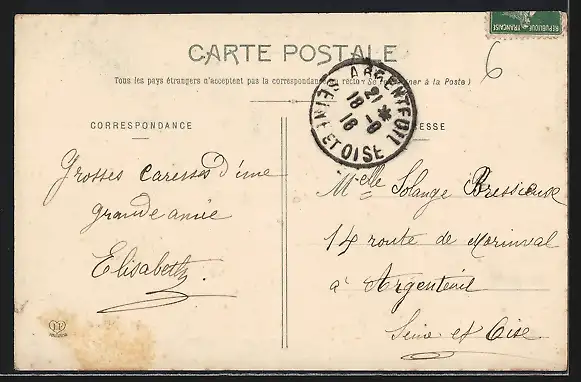 RÉPUBLIQUE FRANÇAISE
6
CARTE POSTALE
Tous les pays étrangers n'acceptent pas la correspondance au recto (Se renseigner à la Poste)
ARGENTEUIL
21 * 18 -8 16
SEINE ET OISE
CORRESPONDANCE
ESSE
Grosses caresses d'une
grande amie
Elisabeth.
Melle Solange Bressieux
14 route de
à Argenteuil
Seine et Oise